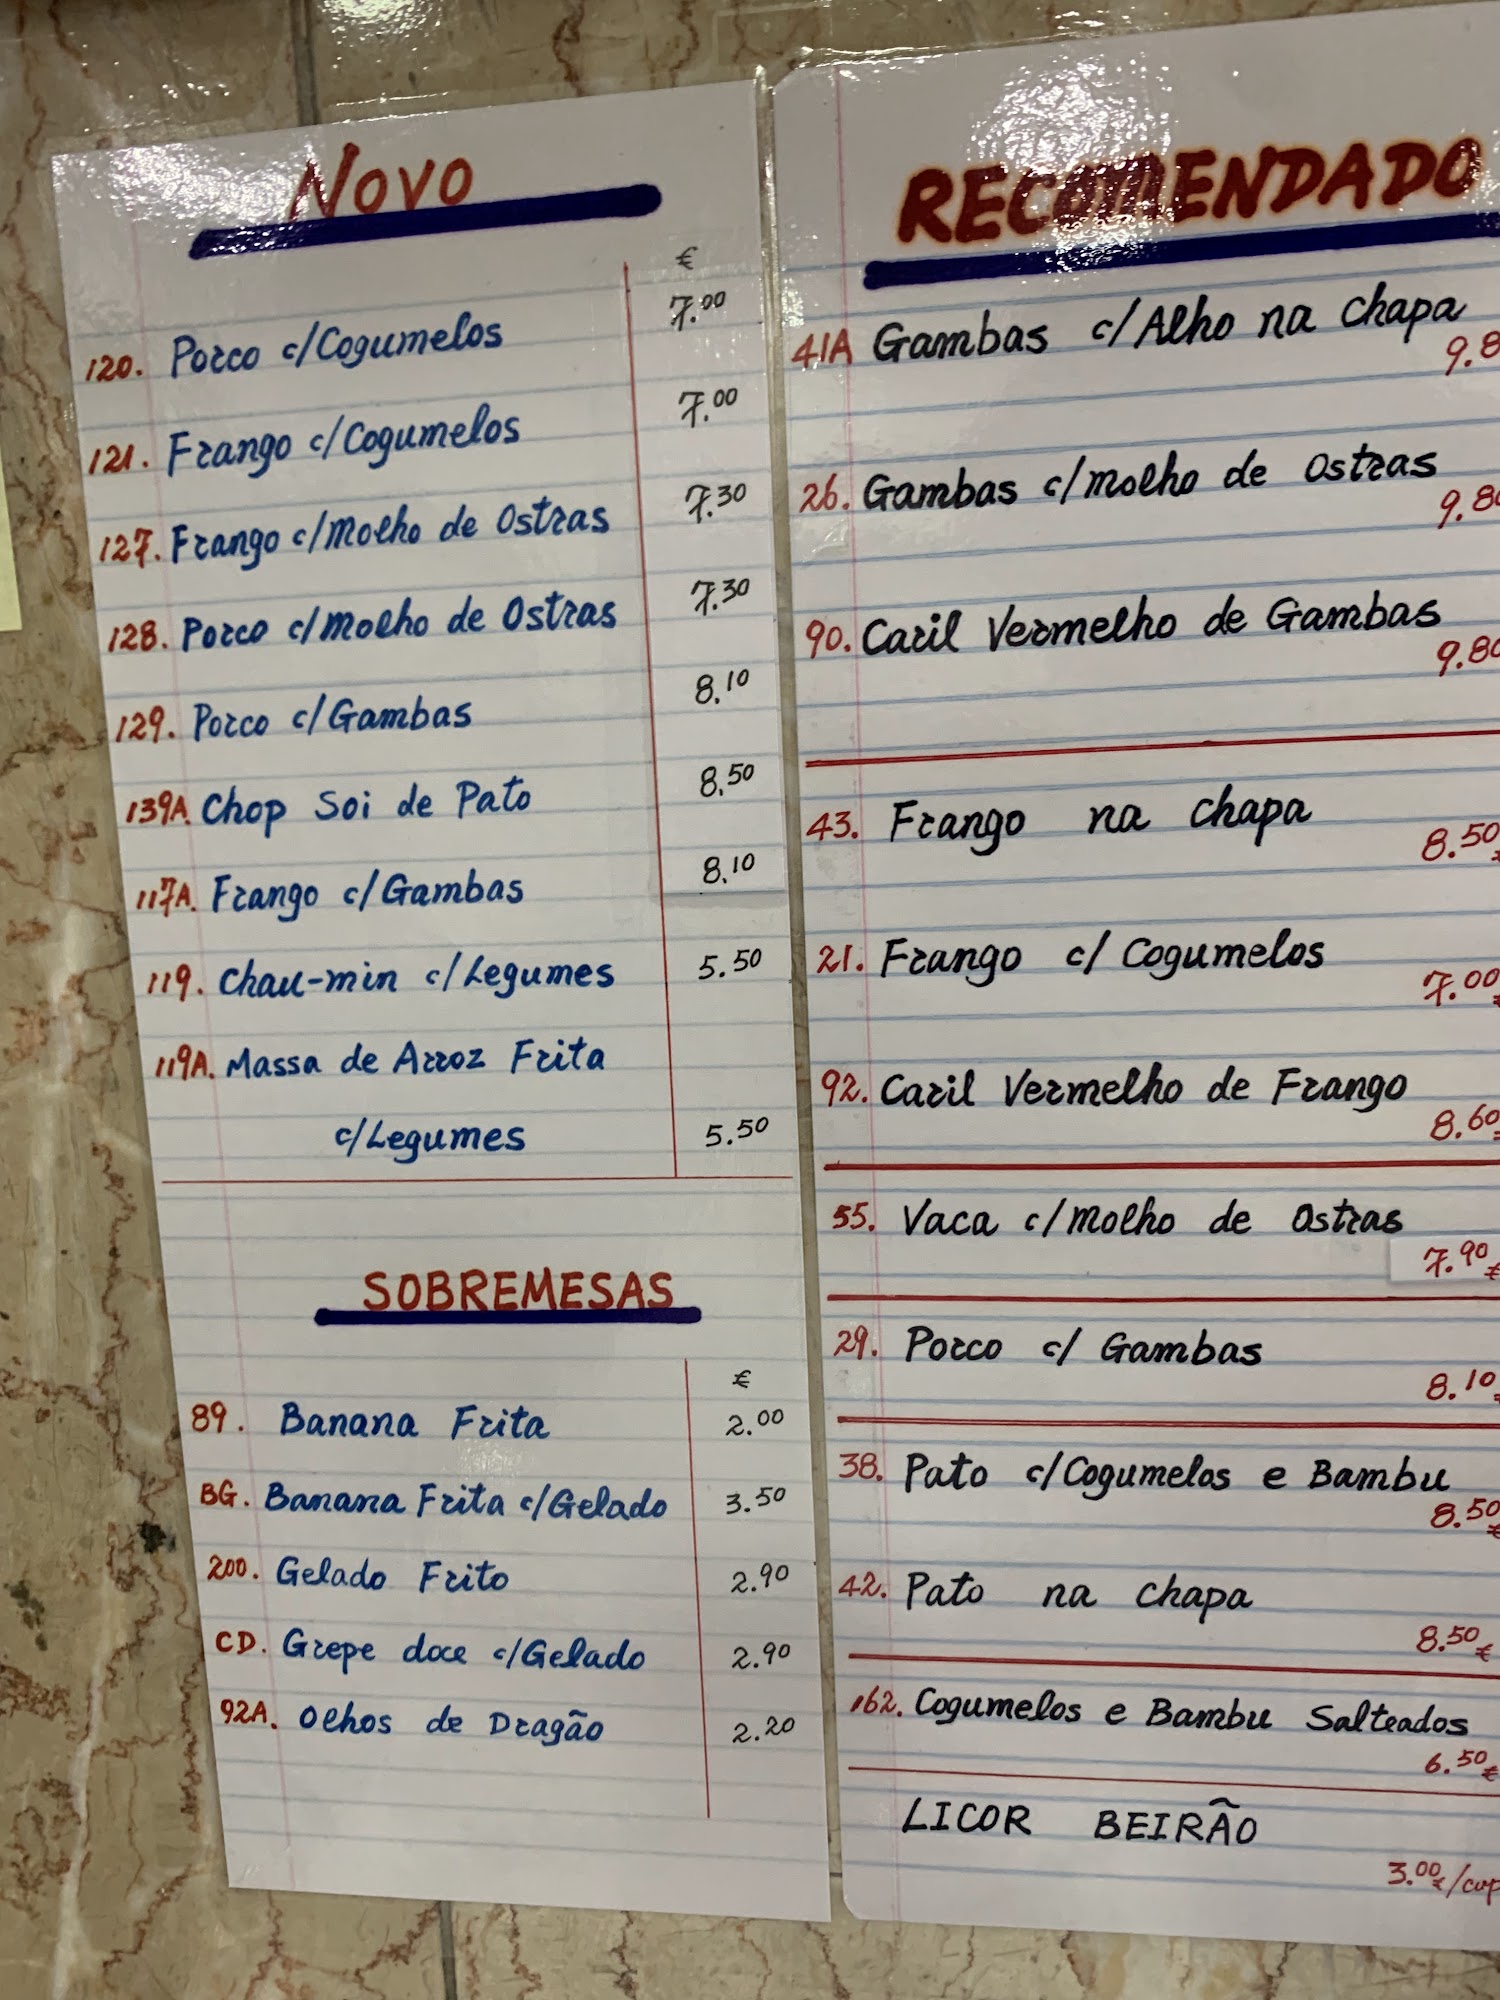 NOVO
€
120. Porco c/Cogumelos 7.00
121. Frango c/Cogumelos 7.00
127. Frango c/Molho de Ostras 7.30
128. Porco c/Molho de Ostras 7.30
129. Porco c/Gambas 8.10
139A. Chop Soi de Pato 8.50
117A. Frango c/Gambas 8.10
119. Chau-min c/Legumes 5.50
119A. Massa de Arroz Frita
c/Legumes 5.50
SOBREMESAS
€
89. Banana Frita 2.00
BG. Banana Frita c/Gelado 3.50
200. Gelado Frito 2.90
CD. Grepe doce c/Gelado 2.90
92A. Olhos de Dragão 2.20
RECOMENDADO
41A Gambas c/Alho na Chapa
9.8
26. Gambas c/molho de Ostras
9.80
90. Caril Vermelho de Gambas
9.80
43. Frango na Chapa
8.50
21. Frango c/ Cogumelos
7.00€
92. Caril Vermelho de Frango
8.60
55. Vaca c/Molho de Ostras
7.90€
29. Porco c/ Gambas
8.10
38. Pato c/Cogumelos e Bambu
8.50€
42. Pato na Chapa
8.50€
162. Cogumelos e Bambu Salteados
6.50€
LICOR BEIRÃO
3.00€/cop